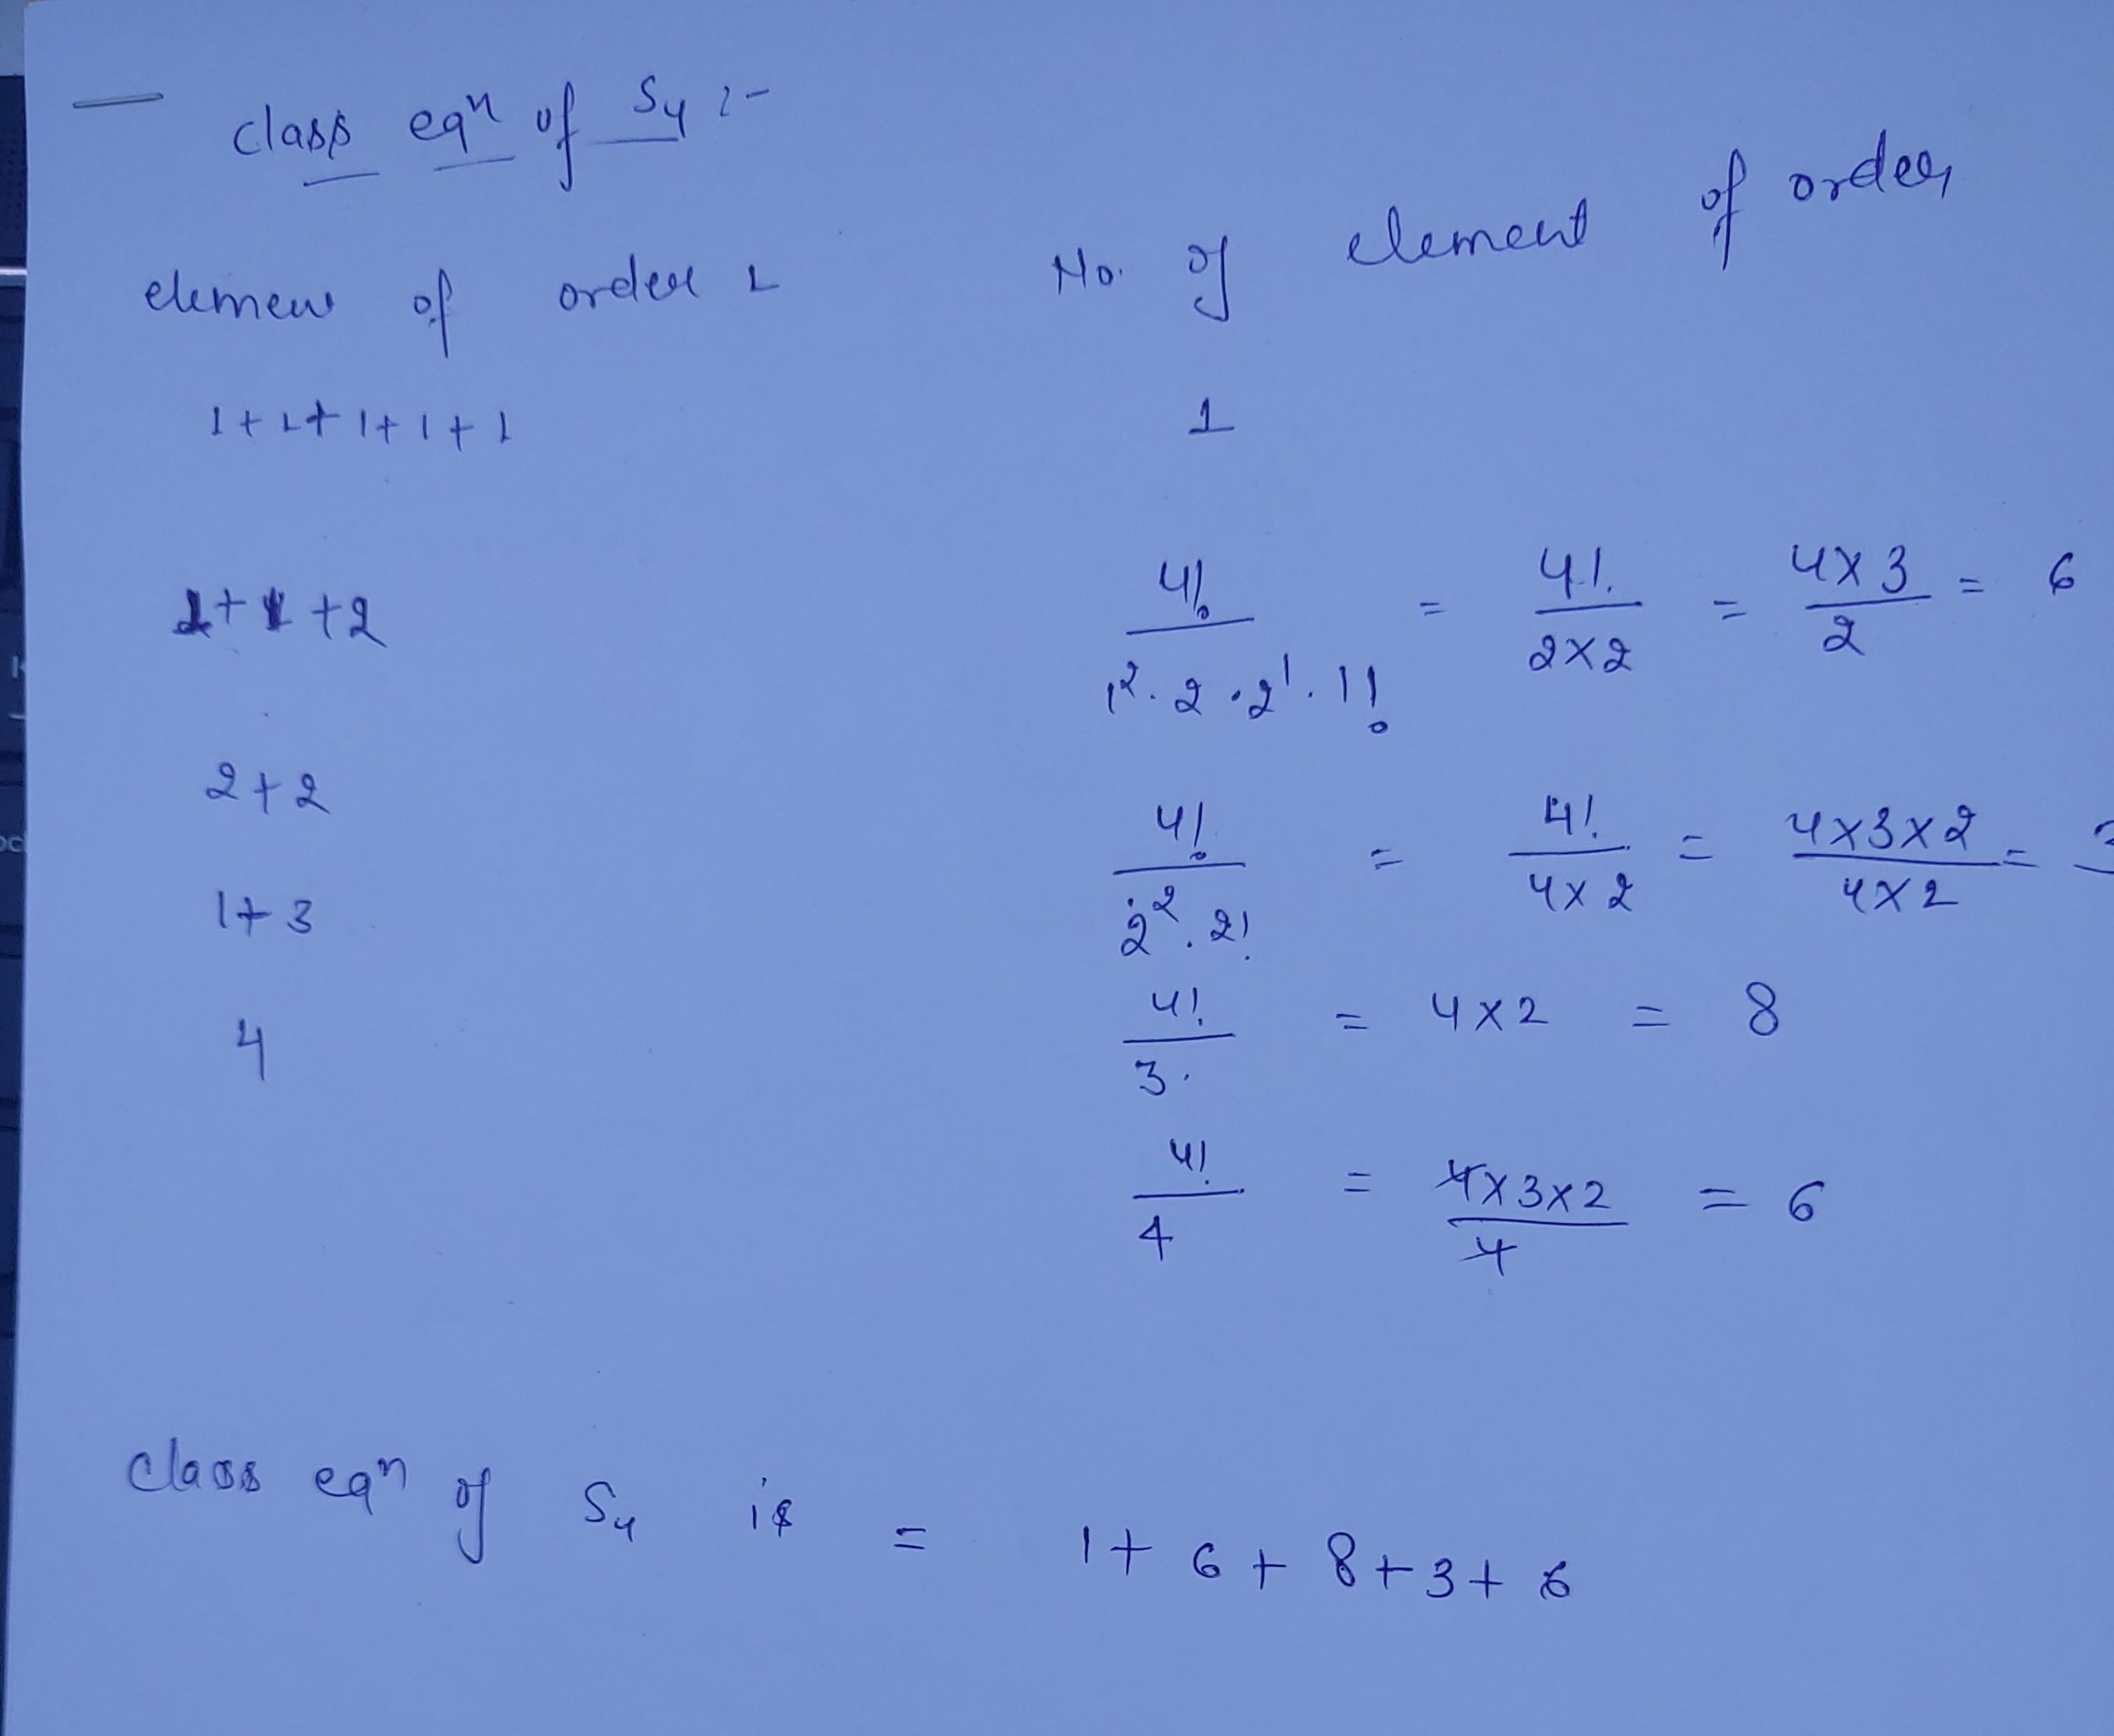 class eqn of S4 :-
element of order 1 No. of element of order
1+1+1+1+1 1
1+1+2 4!/1^2.2.2^1.1! = 4!/2×2 = 4×3/2 = 6
2+2 4!/2^2.2! = 4!/4×2 = 4×3×2/4×2 = 3
1+3 4!/3. = 4×2 = 8
4 4!/4 = 4×3×2/4 = 6
Class eqn of S4 is = 1+6+8+3+6